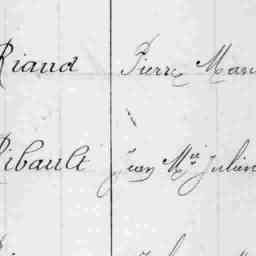 Riaud Pierre Mari
Ribault Jean M.ie Julien